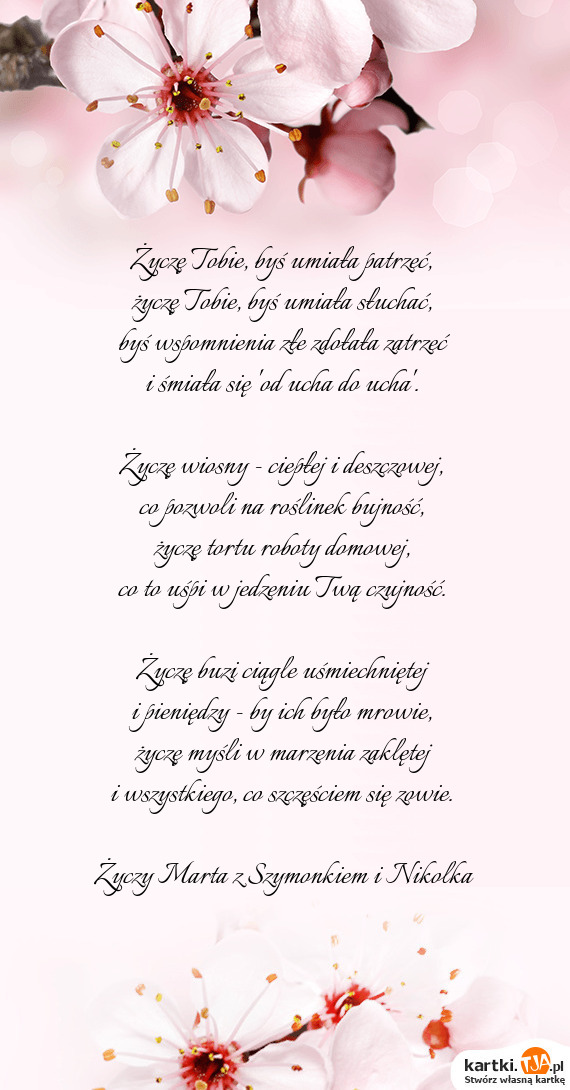 Życzę Tobie, byś umiała patrzeć,
życzę Tobie, byś umiała słuchać,
byś wspomnienia złe zdołała zatrzeć
i śmiała się 'od ucha do ucha'.
Życzę wiosny - ciepłej i deszczowej,
co pozwoli na roślinek bujność,
życzę tortu roboty domowej,
co to uśpi w jedzeniu Twą czujność.
Życzę buzi ciągle uśmiechniętej
i pieniędzy - by ich było mrowie,
życzę myśli w marzenia zaklętej
i wszystkiego, co szczęściem się zowie.
Życzy Marta z Szymonkiem i Nikolka
kartki.TJA.pl
Stwórz własną kartkę